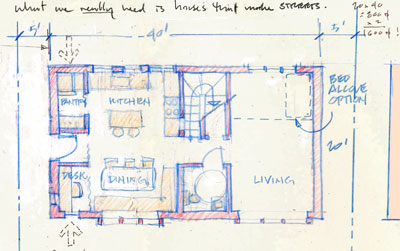 what we really need is houses that make STREETS.
20x40
= 800 sf
x 2
1600 sf!
5'
40'
5'
PANTRY
KITCHEN
BED
ALCOVE
OPTION
20'
DESK
DINING
LIVING